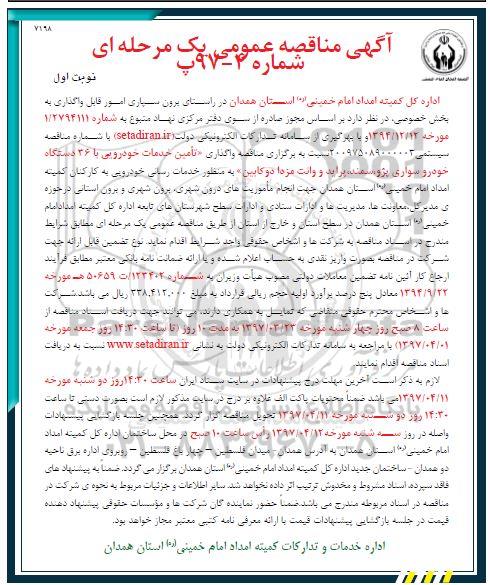 ۷۱۹۸
آگهی مناقصه عمومی یک مرحله ای
شماره ۲-۹۷پ
نوبت اول
اداره کل کمیته امداد امام خمینی(ره) استان همدان در راستای برون سپاری امور قابل واگذاری به
بخش خصوصی، در نظر دارد بر اساس مجوز صادره از سوی دفتر مرکزی نهاد متبوع به شماره ۱/۲۷۹۴۱۱۱
مورخه ۱۳۹۴/۱۲/۱۲و با بهره گیری از سامانه تدارکات الکترونیکی دولت(setadiran.ir) با شماره مناقصه
سیستمی۲۰۰۹۷۵۰۸۹۰۰۰۰۰۳نسبت به برگزاری مناقصه واگذاری «تأمین خدمات خودرویی با ۳۶ دستگاه
خودرو سواری پژو،سمند،پراید و وانت مزدا دوکابین» به منظور خدمات رسانی خودرویی به کارکنان کمیته
امداد امام خمینی(ره)استان همدان جهت انجام مأموریت های درون شهری، برون شهری و برون استانی درحوزه
ی مدیرکل،معاونت ها، مدیریت ها و ادارات ستادی و ادارات سطح شهرستان های تابعه اداره کل کمیته امدادامام
خمینی(ره) استان همدان در سطح استان و خارج از استان از طریق مناقصه عمومی یک مرحله ای مطابق شرایط
مندرج در اسناد مناقصه به شرکت ها و اشخاص حقوقی واجد شرایط اقدام نماید. نوع تضمین قابل ارائه جهت
شرکت در مناقصه بصورت واریز نقدی به حساب اعلام شده و یا ارائه ضمانت نامه بانکی معتبر مطابق فرآیند
ارجاع کار آئین نامه تضمین معاملات دولتی مصوب هیأت وزیران به شماره ۱۲۳۴۰۲/ت ۵۰۶۵۹ هـ مورخه
۱۳۹۴/۹/۲۲ معادل پنج درصد برآورد اولیه حجم ریالی قرارداد به مبلغ ۳۳۸,۴۱۲,۰۰۰ ریال می باشد.شرکت
ها و اشخاص محترم حقوقی متقاضی که تمایل به همکاری دارند، می توانند جهت دریافت اسناد مناقصه از
ساعت ۸ صبح روز چهار شنبه مورخه ۱۳۹۷/۰۳/۲۳ به مدت ۱۰ روز (تا ساعت ۱۴:۳۰ روز جمعه مورخه
۱۳۹۷/۰۴/۰۱) با مراجعه به سامانه تدارکات الکترونیکی دولت به نشانی www.setadiran.ir نسبت به دریافت
اسناد مناقصه اقدام نمایند.
لازم به ذکر است آخرین مهلت درج پیشنهادات در سایت ستاد ایران ساعت ۱۴:۳۰روز دو شنبه مورخه
۱۳۹۷/۰۴/۱۱می باشد ضمناً محتویات پاکت الف علاوه بر درج در سایت مذکور لازم است بصورت دستی تا ساعت
۱۴:۳۰ روز دو شنبه مورخه ۱۳۹۷/۰۴/۱۱ تحویل مناقصه گزار گردد. همچنین جلسه بازگشایی پیشنهادات
واصله در روز سه شنبه مورخه ۱۳۹۷/۰۴/۱۲ رأس ساعت ۱۰ صبح در محل ساختمان اداره کل کمیته امداد
امام خمینی(ره) استان همدان به آدرس همدان - میدان فلسطین – چهار باغ فلسطین – روبروی اداره برق ناحیه
دو همدان – ساختمان جدید اداره کل کمیته امداد امام خمینی(ره) استان همدان برگزار می گردد.ضمناً به پیشنهاد های
فاقد سپرده، اسناد مشروط و مخدوش ترتیب اثر داده نخواهد شد. سایر اطلاعات و جزئیات مربوط به نحوه ی شرکت در
مناقصه در اسناد مربوطه مندرج می باشد.ضمناً حضور نماینده گان شرکت ها و مؤسسات حقوقی پیشنهاد دهنده
قیمت در جلسه بازگشایی پیشنهادات قیمت با ارائه معرفی نامه کتبی معتبر مجاز خواهد بود.
اداره خدمات و تدارکات کمیته امداد امام خمینی(ره) استان همدان